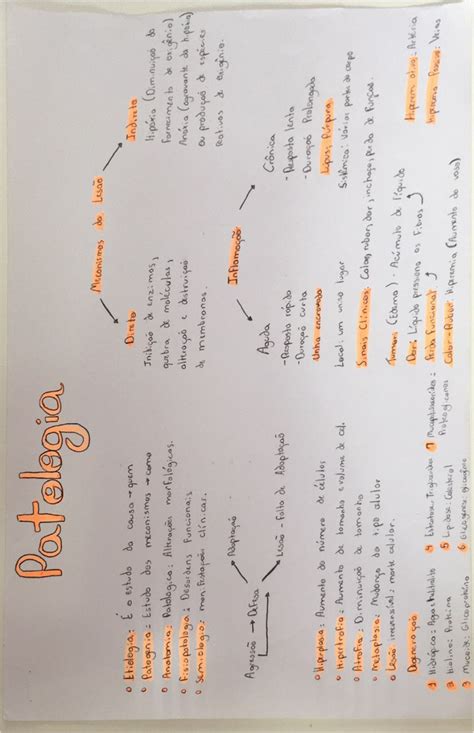 Patologia
Etiologia: É o estudo da causa → quem
Patogenia: Estudo dos mecanismos → como
Anatomia Patológica: Alterações morfológicas.
Fisiopatologia: Desordens funcionais
Semiologia: manifestações clínicas.
Agressão → Defesa
Adaptação
Lesão - Falta de Adaptação
Hiperplasia: Aumento do número de células;
Hipertrofia: Aumento do tamanho e volume da cel.
Atrofia: Diminuição do tamanho
Metaplasia: Mudança do tipo celular
Lesão irreversível: morte celular.
Degeneração
1 Hidrópica: Água e
2 Hialina: Proteína
3 Mucoide: Glicoproteína
4 Esteatose: Triglicerídeos
5 Lipidose: Colesterol
6 Glicogenose: glicogênio
7 Mucopolissacaridoses:
Proteoglicanos
Mecanismos da Lesão
Direto
Inibição de enzimas,
quebra de moléculas,
alteração e destruição
de membranas.
Indireto
Hipóxia (Diminuição do
Fornecimento de oxigênio)
Anóxia (agravante da hipóxia)
ou produção de espécies
Reativas de Oxigênio.
Inflamação
Aguda
- Resposta rápida
- Duração curta
Unha encravada
Local: um único lugar
Crônica
- Resposta lenta
- Duração Prolongada
Lúpus, Púrpura
Sistêmica: Várias partes do corpo
Sinais Clínicos: Calor, rubor, dor, inchaço, perda de função.
Tumor (Edema): Acúmulo de líquido
Dor: Líquido pressiona as Fibras
Perda Funcional
Calor - Rubor: Hiperemia (Aumento do vaso)
Hiperem ativa: Artéria
Hiperemia Passiva: Veias